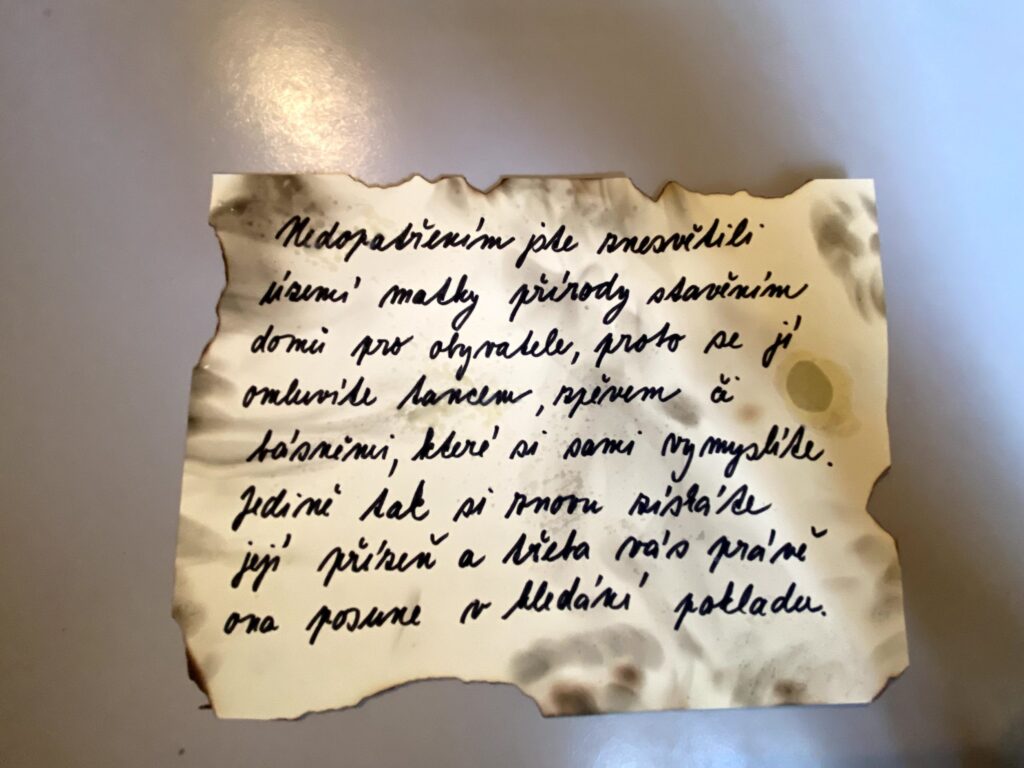 Nedopatřením jste znesvětili
území matky přírody stavěním
domů pro obyvatele, proto se jí
omluvíte tancem, zpěvem či
básněmi, které si sami vymyslíte.
Jedině tak si znovu získáte
její přízeň a třeba vás právě
ona posune v hledání pokladu.